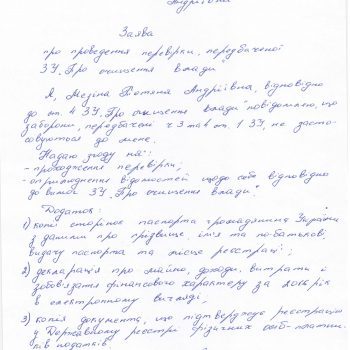 Андріївна
Заява
про проведення перевірки, передбаченої
ЗУ „Про очищення влади"
Я, Мезіна Тетяна Андріївна, відповідно
до ст. 4 ЗУ „Про очищення влади" повідомляю, що
заборони, передбачені ч 3 та 4 ст. 1 ЗУ, не засто-
совуються до мене.
Надаю згоду на:
- проходження перевірки;
- оприлюднення відомостей щодо себе відповідно
до вимог ЗУ „Про очищення влади"
Додаток:
1) копії сторінок паспорта громадянина України
з даними про прізвище, ім'я та по батькові,
видачу паспорта та місце реєстрації;
2) декларація про майно, доходи, витрати і
зобов'язання фінансового характеру за 2016 рік
в електронному вигляді;
3) копія документа, що підтверджує реєстрацію
у Державному реєстрі фізичних осіб-платни-
ків податків